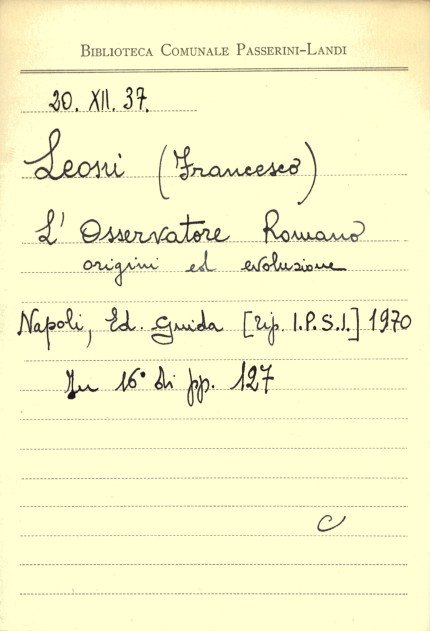 BIBLIOTECA COMUNALE PASSERINI-LANDI
20. XII. 37.
Leoni (Francesco)
L' Osservatore Romano
origini ed evoluzione
Napoli, Ed. Guida [tip. I.P.S.I.] 1970
In 16° di pp. 127
C